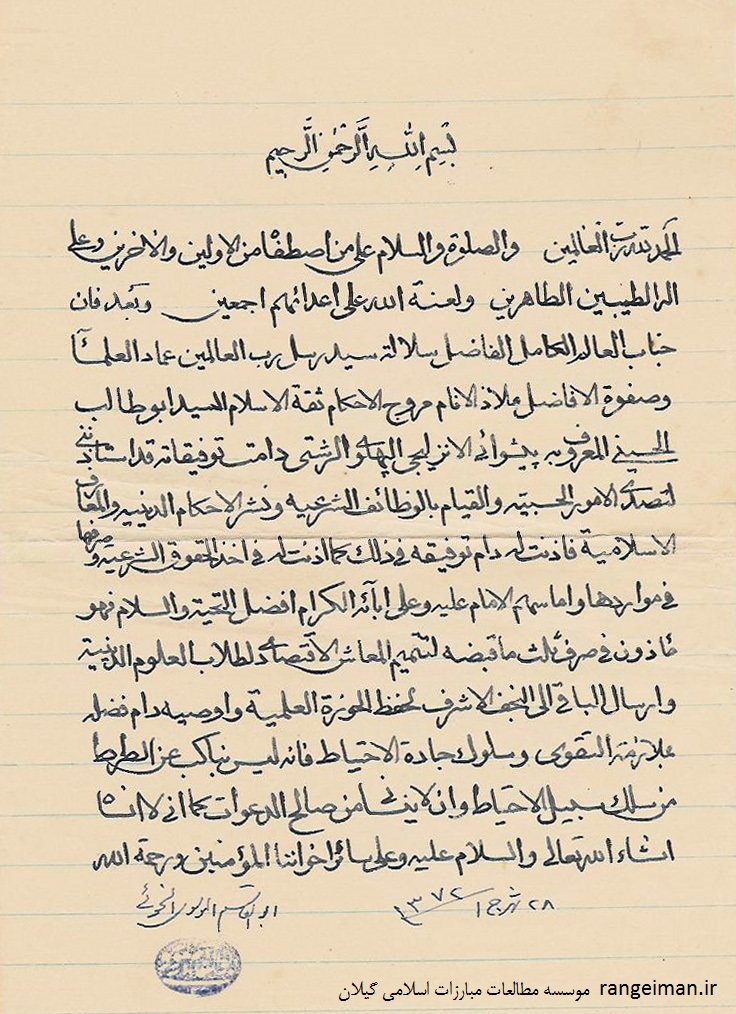 بسم الله الرحمن الرحيم
الحمد لله رب العالمين والصلوة والسلام على من اصطفاه من الاولين والاخرين وعلى
اله الطيبين الطاهرين ولعنة الله على اعدائهم اجمعين وبعد فان
جناب العالم الكامل الفاضل سلالة سيد رسل رب العالمين عماد العلماء
وصفوة الافاضل ملاذ الانام مروج الاحكام ثقة الاسلام السيد ابوطالب
الحسيني المعروف به پيشوائي الانزليجي الپهلوي الرشتي دامت توفيقاته قد استاذنني
لتصدي الامور الحسبيه والقيام بالوظائف الشرعيه ونشر الاحكام الدينيه والمعارف
الاسلامية فاذنت له دام توفيقه في ذلك كما اذنت له في اخذ الحقوق الشرعيه وصرفها
في مواردها واما سهم الامام عليه وعلى ابآئه الكرام افضل التحية والسلام فهو
ماذون في صرف ثلث ما قبضه لتتميم المعاش الاقتصادي لطلاب العلوم الدينية
وارسال الباقي الى النجف الاشرف لحفظ الحوزة العلمية واوصيه دام فضله
بملازمة التقوى وسلوك جادة الاحتياط فانه ليس بناكب عن الصراط
من سلك سبيل الاحتياط وان لا ينساني من صالح الدعوات كما اني لا انساه
انشاء الله تعالى والسلام عليه وعلى سائر اخواننا المؤمنين ورحمة الله
٢٨ شهر ج ١ ١٣٧٢ ابوالقاسم الموسوي الخوئي
rangeiman.ir موسسه مطالعات مبارزات اسلامی گیلان